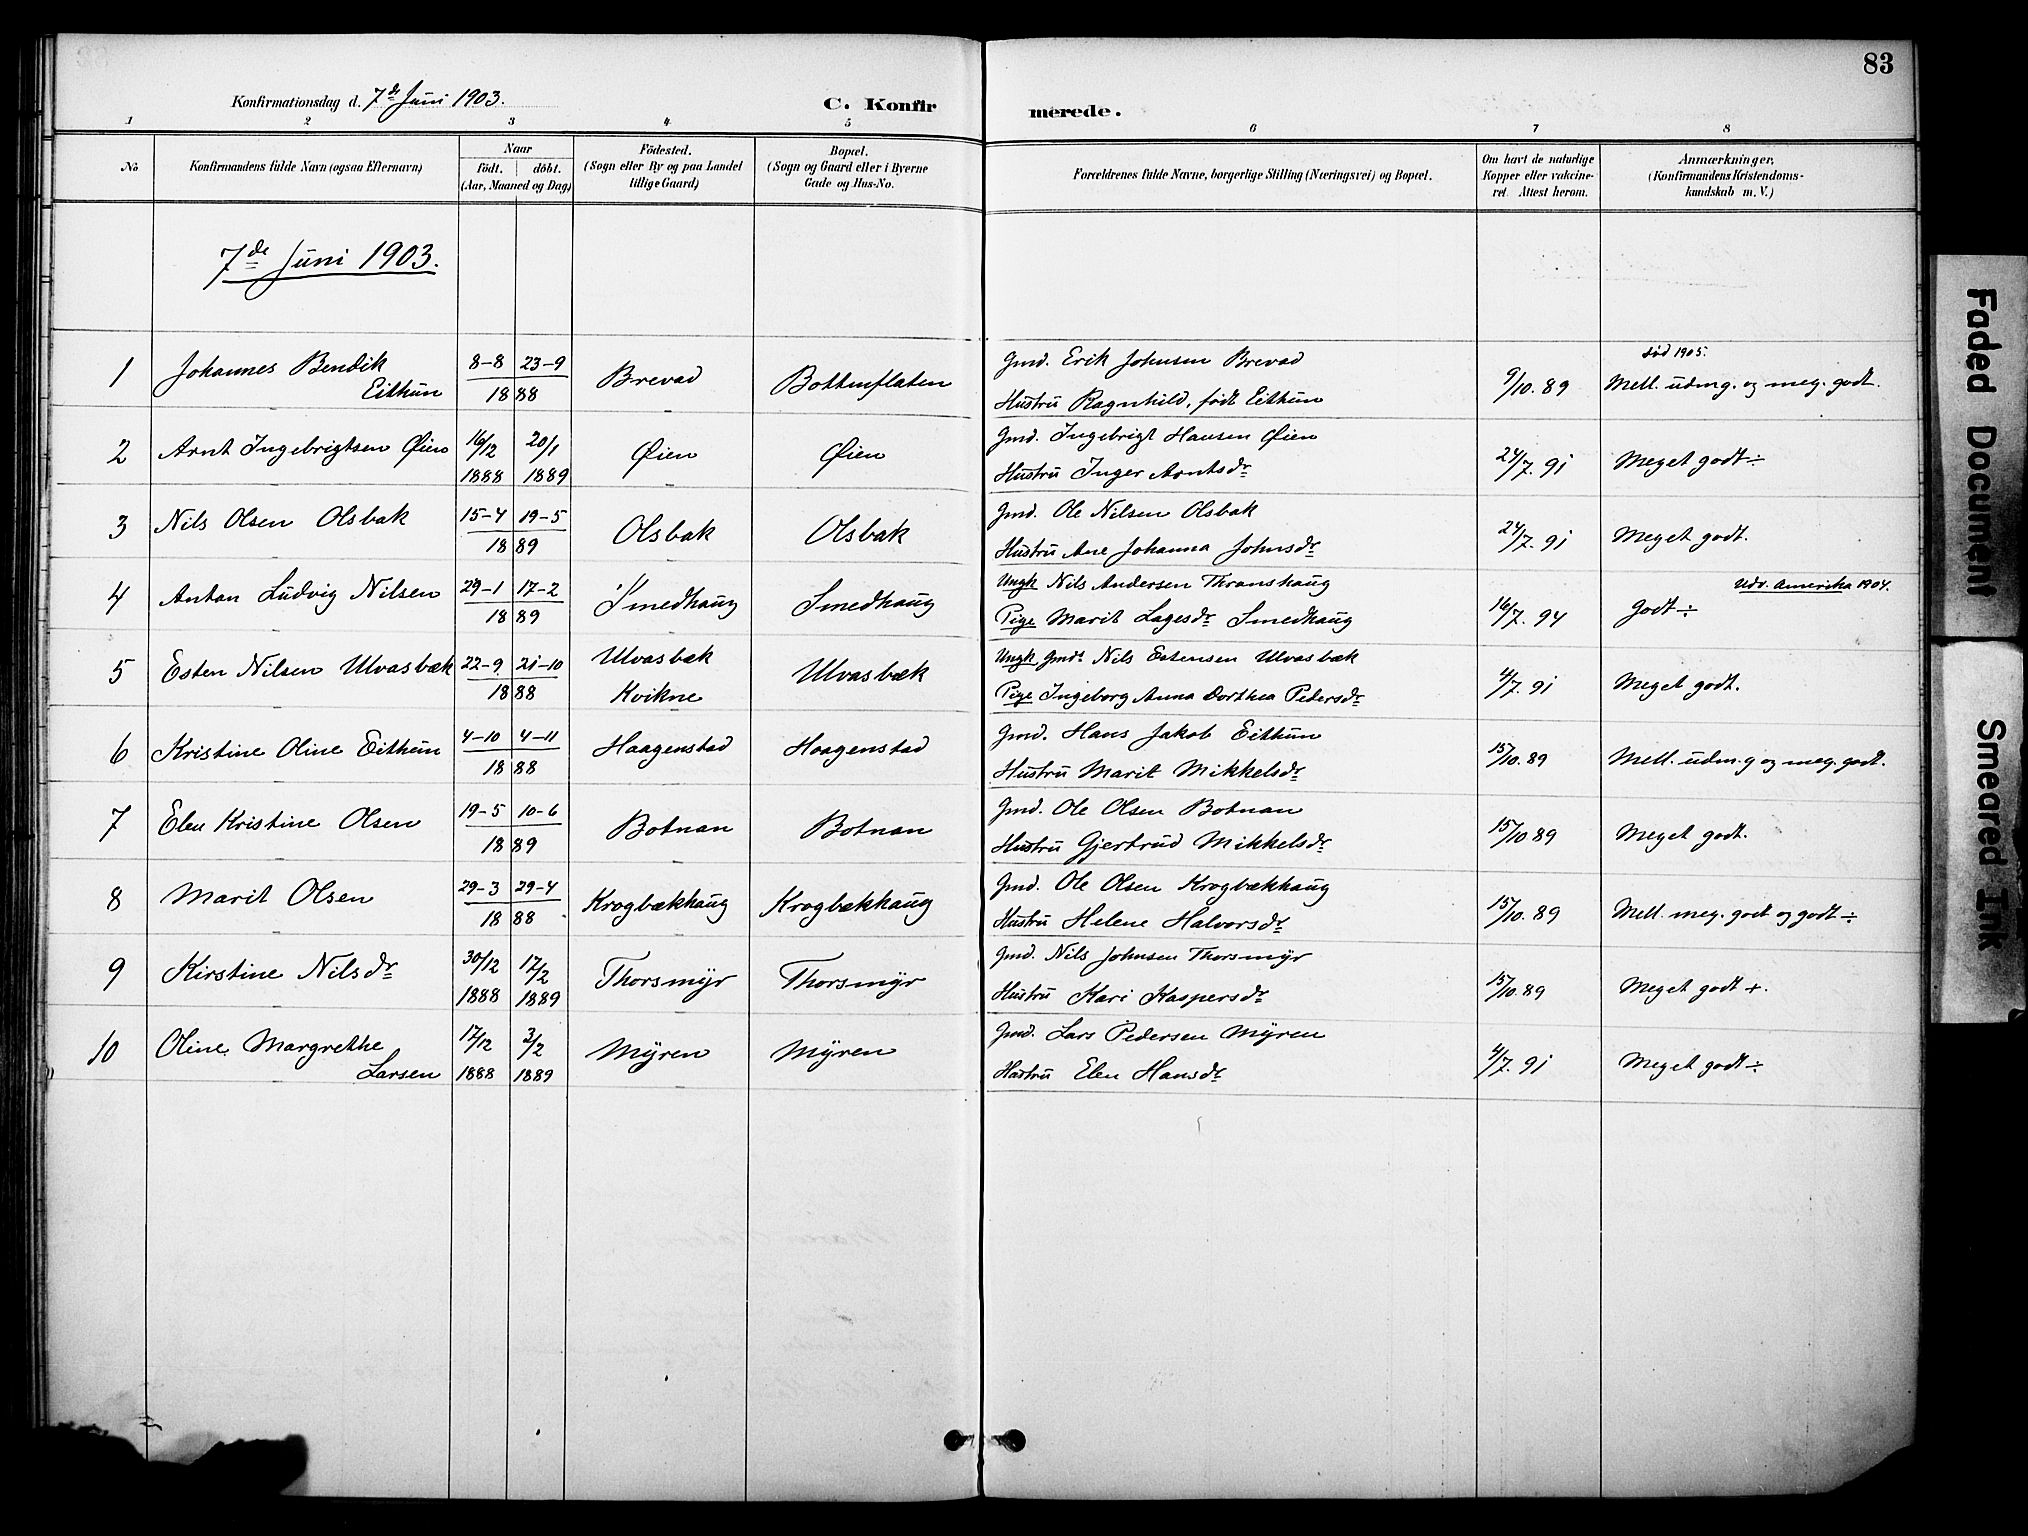 83
Konfirmationsdag d. 7de Juni 1903.
C. Konfir
merede.
1 2 3 4 5 6 7 8
No
Konfirmandens fulde Navn (ogsaa Efternavn)
Naar
födt. döbt.
(Aar, Maaned og Dag)
Födested.
(Sogn eller By og paa Landet
tillige Gaard)
Bopæl.
(Sogn og Gaard eller i Byerne
Gade og Hus-No.
Forældrenes fulde Navne, borgerlige Stilling (Næringsvei) og Bopæl.
Om havt de naturlige
Kopper eller vakcine-
ret. Attest herom.
Anmærkninger,
(Konfirmandens Kristendoms-
kundskab m. V.)
7de Juni 1903.
1 Johannes Bendik
Eithun
8-8 23-9
1888
Brevad
Bottenflaten
Gmd. Erik Johnsen Brevad
Hustru Ragnhild, født Eithun
9/10. 89
død 1905.
Mell. udm.g. og meg. godt.
2 Arnt Ingebrigtsen Øien
16/12 20/1
1888 1889
Øien
Øien
Gmd. Ingebrigt Hansen Øien
Hustru Inger Arntsdr
24/7. 91
Meget godt ÷
3 Nils Olsen Olsbak
15-4 19-5
1889
Olsbak
Olsbak
Gmd. Ole Nilsen Olsbak
Hustru Ane Johanna Johnsdr
24/7. 91
Meget godt.
4 Anton Ludvig Nilsen
29-1 17-2
1889
Smedhaug
Smedhaug
Ungk Nils Andersen Thronshaug
Pige Marit Lagesdr Smedhaug
16/7. 94
Udv. Amerika 1904.
Godt ÷
5 Esten Nilsen Ulvasbæk
22-9 21-10
1888
Ulvasbæk
Kvikne
Ulvasbæk
Ungk Gmds Nils Estensen Ulvasbæk
Pige Ingeborg Anna Dorthea Pedersdr
4/7. 91
Meget godt.
6 Kristine Oline Eithun
4-10 4-11
1888
Haagenstad
Haagenstad
Gmd. Hans Jakob Eithun
Hustru Marit Mikkelsdr
15/10. 89
Mell. udm.g og meg. godt.
7 Elen Kristine Olsen
19-5 10-6
1889
Botnan
Botnan
Gmd. Ole Olsen Botnan
Hustru Gjertrud Mikkelsdr
15/10 89
Meget godt.
8 Marit Olsen
29-3 29-4
1888
Krogbækhaug
Krogbækhaug
Gmd. Ole Olsen Krogbækhaug
Hustru Helene Halvorsdr
15/10. 89
Mell. meg. godt og godt ÷
9 Kirstine Nilsdr
30/12 17/2
1888 1889
Thorsmyr
Thorsmyr
Gmd. Nils Johnsen Thorsmyr
Hustru Kari Kaspersdr
15/10. 89
Meget godt +.
10 Oline Margrethe
Larsen
17/12 3/2
1888 1889
Myren
Myren
Gmd. Lars Pedersen Myren
Hustru Elen Hansdr
4/7. 91
Meget godt ÷
Faded Document
Smeared Ink